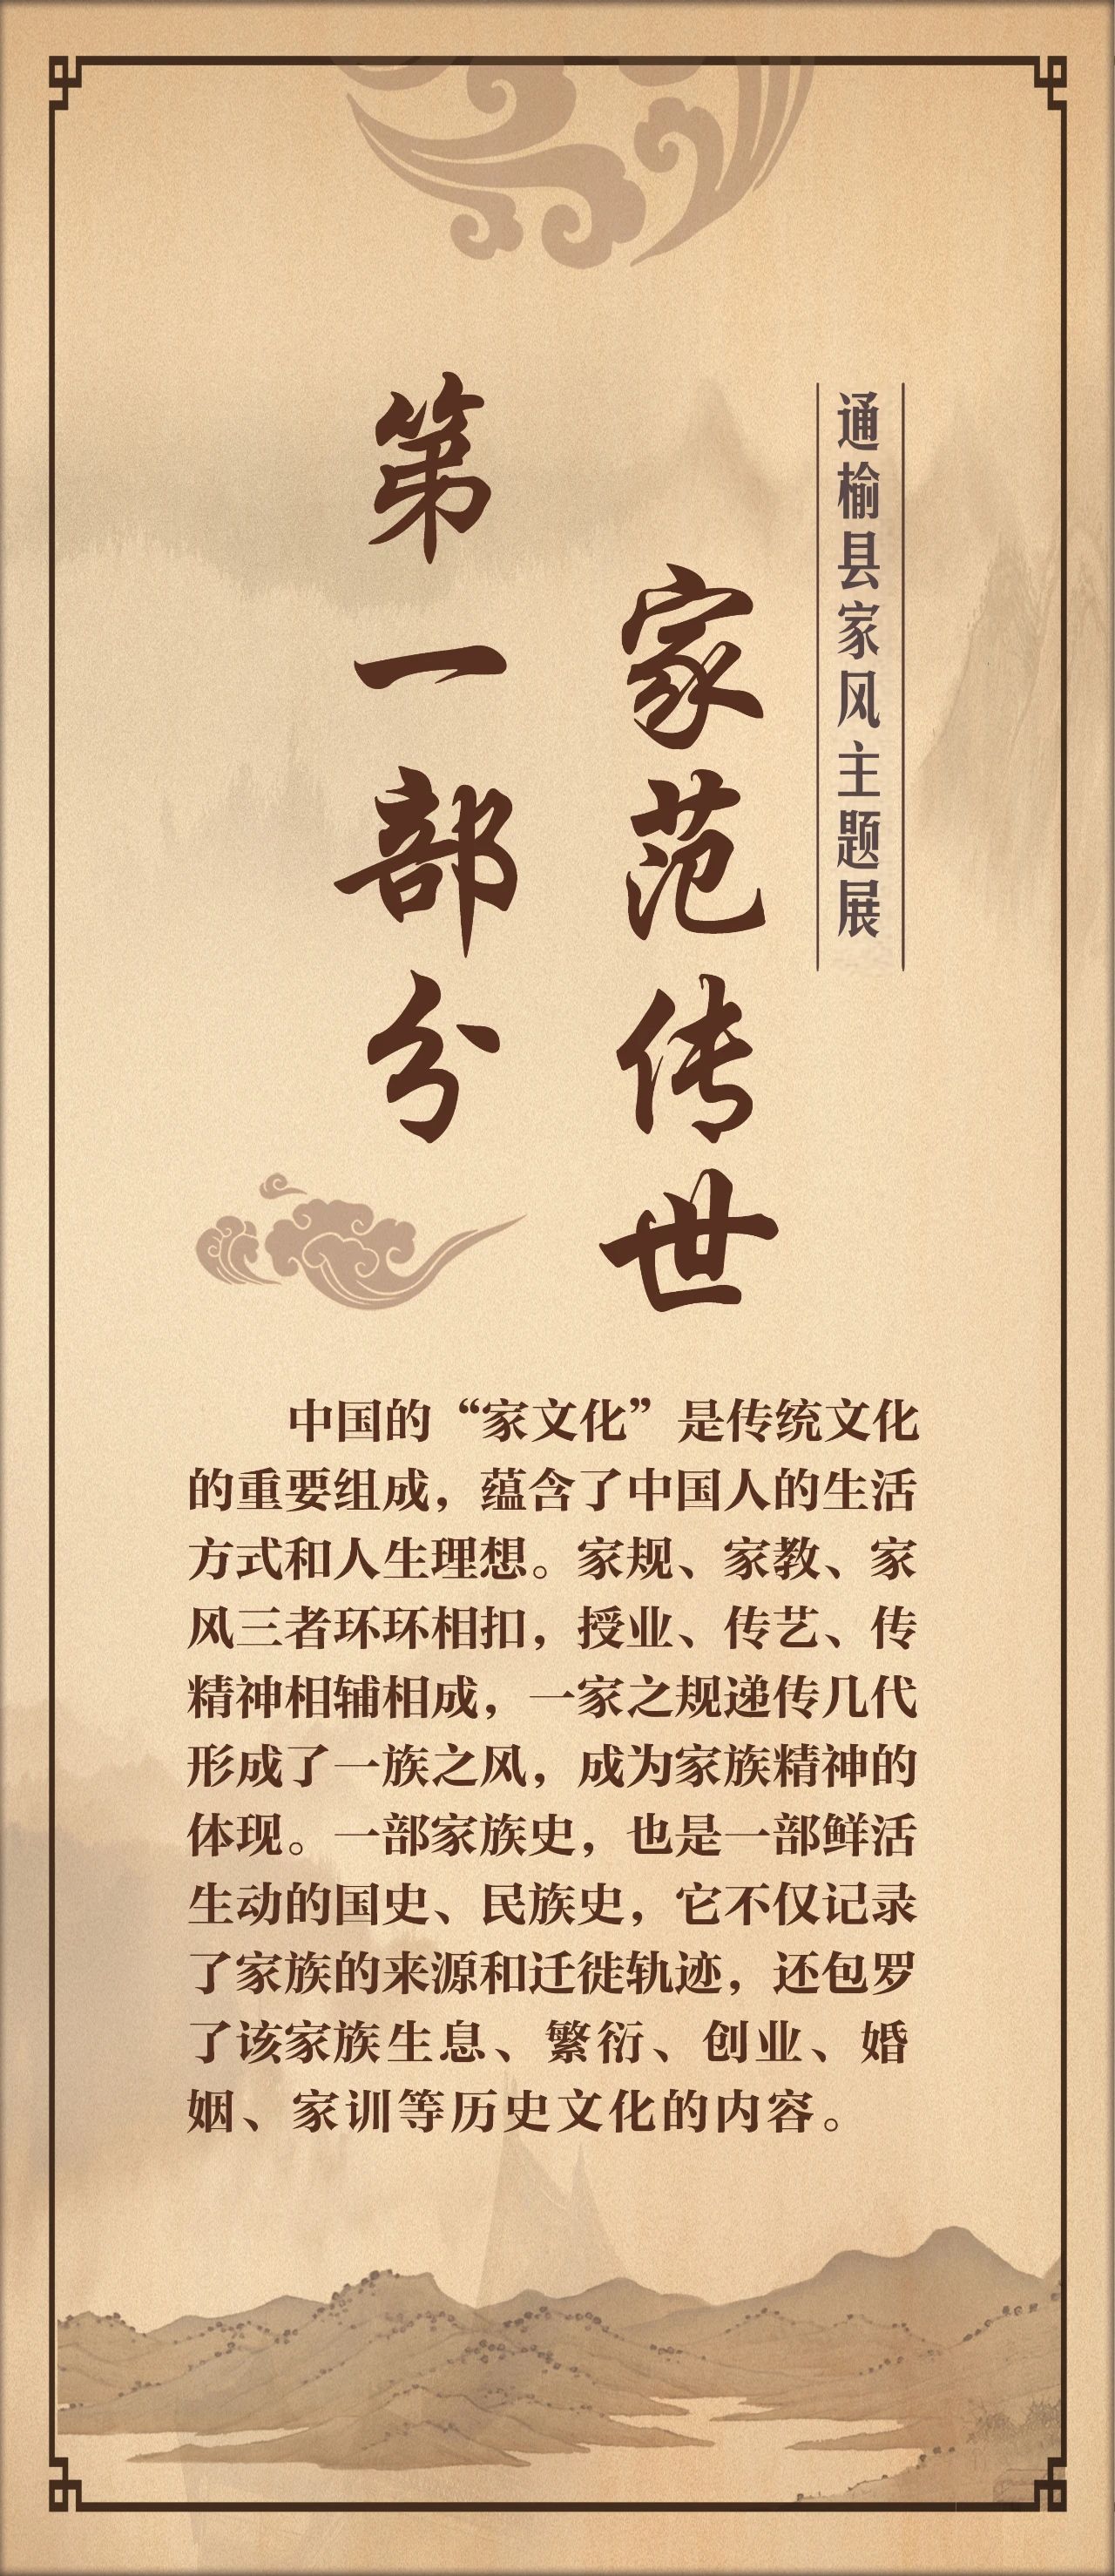 通榆县家风主题展
第一部分
家范传世
中国的“家文化”是传统文化
的重要组成，蕴含了中国人的生活
方式和人生理想。家规、家教、家
风三者环环相扣，授业、传艺、传
精神相辅相成，一家之规递传几代
形成了一族之风，成为家族精神的
体现。一部家族史，也是一部鲜活
生动的国史、民族史，它不仅记录
了家族的来源和迁徙轨迹，还包罗
了该家族生息、繁衍、创业、婚
姻、家训等历史文化的内容。